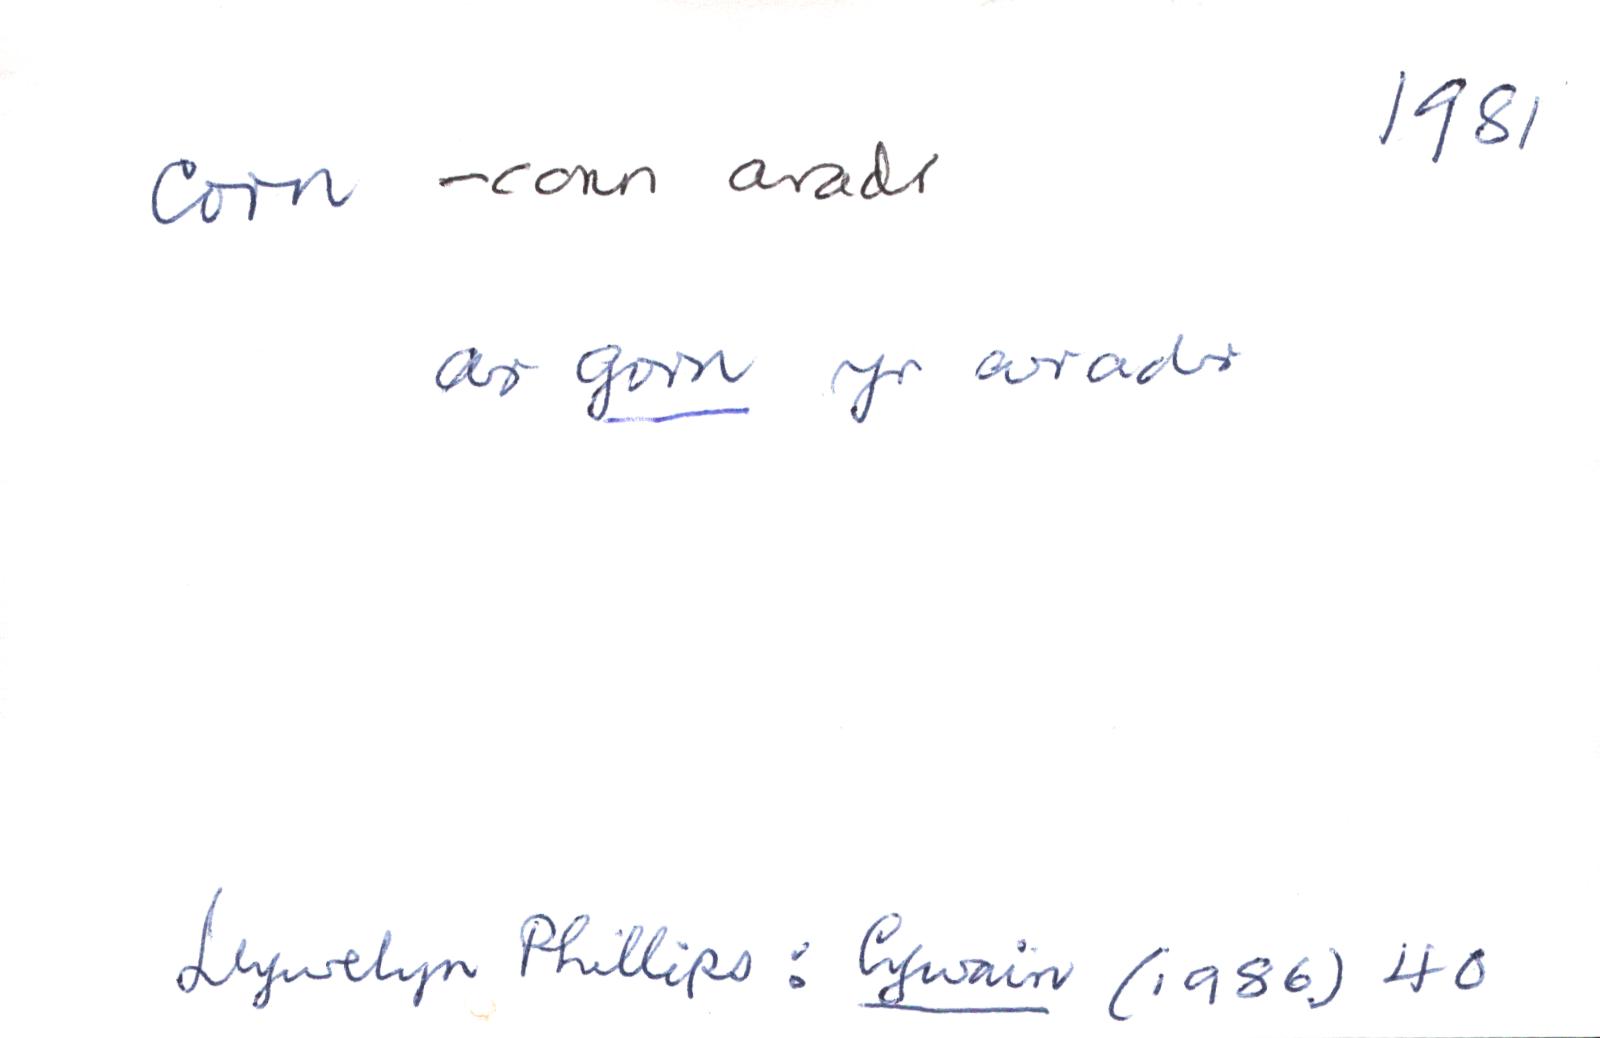 1981
Corn - corn aradr
ar gorn yr aradr
Llywelyn Phillips : Cywain (1986) 40